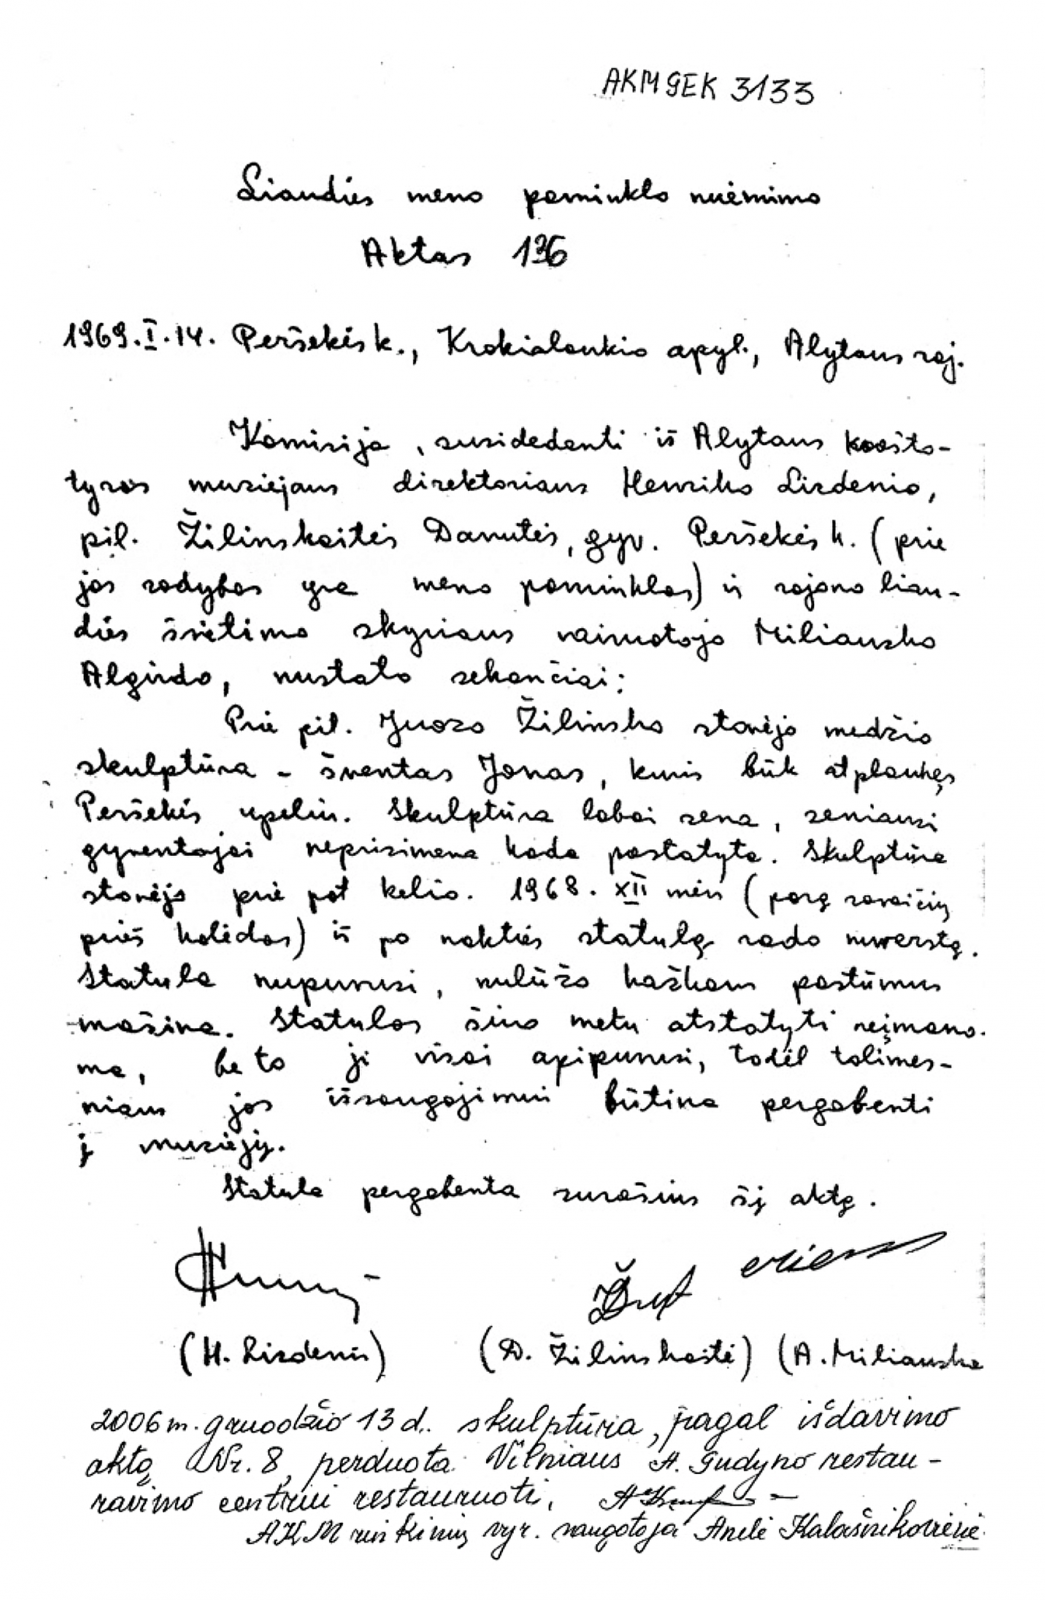 AKM GEK 3133
Liaudies meno paminklo nuėmimo
Aktas 136
1969.I.14. Peršekės k., Krokialaukio apyl., Alytaus raj.
Komisija, susidedanti iš Alytaus krašto-
tyros muziejaus direktoriaus Henriko Lizdenio,
pil. Žilinskaitės Danutės, gyv. Peršekės k. (prie
jos sodybos yra meno paminklas) ir rajono liau-
dies švietimo skyriaus vairuotojo Miliausko
Algirdo, nustato sekančiai:
Prie pil. Juozo Žilinsko stovėjo medžio
skulptūra - šventas Jonas, kuris būk atplaukęs
Peršekės upeliu. Skulptūra labai sena, seniausi
gyventojai neprisimena kada pastatyta. Skulptūra
stovėjo prie pat kelio. 1968. XII mėn (porą savaičių
prieš kalėdas) iš po nakties statulą rado nuverstą.
Statula nupuvusi, nulūžo kažkam pastūmus
mašina. Statulos šiuo metu atstatyti neįmano-
ma, be to ji visai apipuvusi, todėl tolimes-
niam jos išsaugojimui būtina pergabenti
į muziejų.
Statula pergabenta surašius šį aktą.
(H. Lizdenis) (D. Žilinskaitė) (A. Miliauska
2006 m. gruodžio 13 d. skulptūra, pagal išdavimo
aktą Nr. 8, perduota Vilniaus P. Gudyno restau-
ravimo centrui restauruoti.
AKM rinkinių vyr. saugotoja Anelė Kalašnikovienė